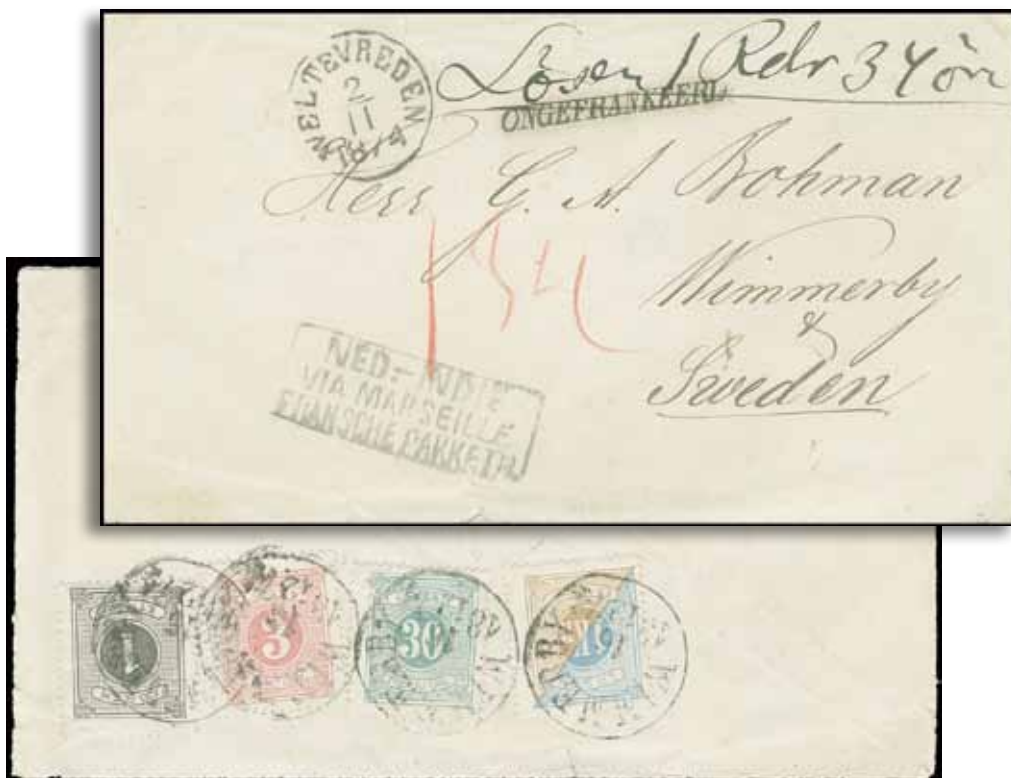 WELTEVREDEN
2
11
1874
Lösen 1 Rdr 34 öre
ONGEFRANKEERD
Herr G. A. Bohman
134
Wimmerby
Sweden
NED:-INDIE
VIA MARSEILLE
FRANSCHE PAKKETB.
1
3
30